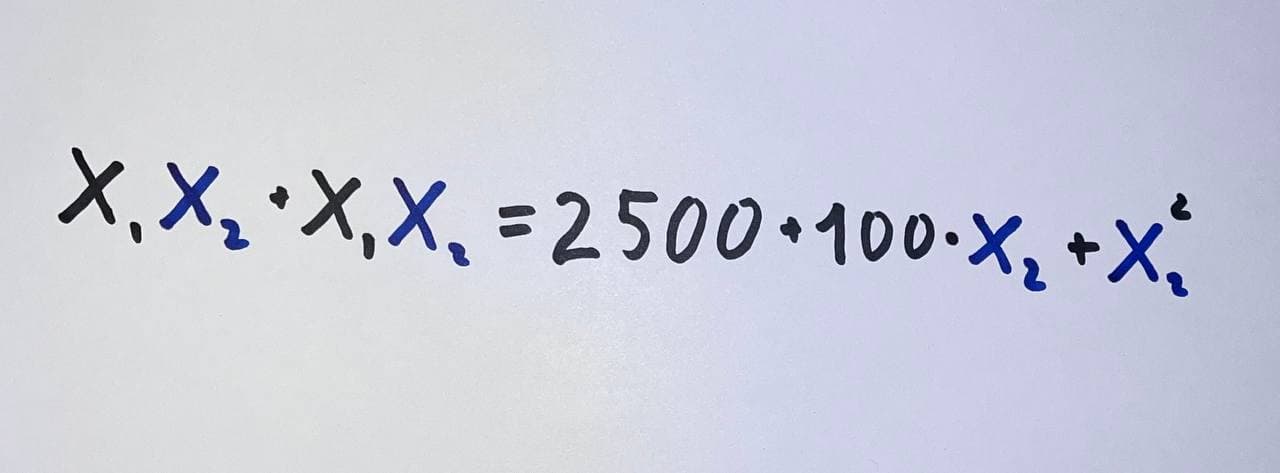 X₁X₂·X₁X₂=2500+100·X₂+X₂²